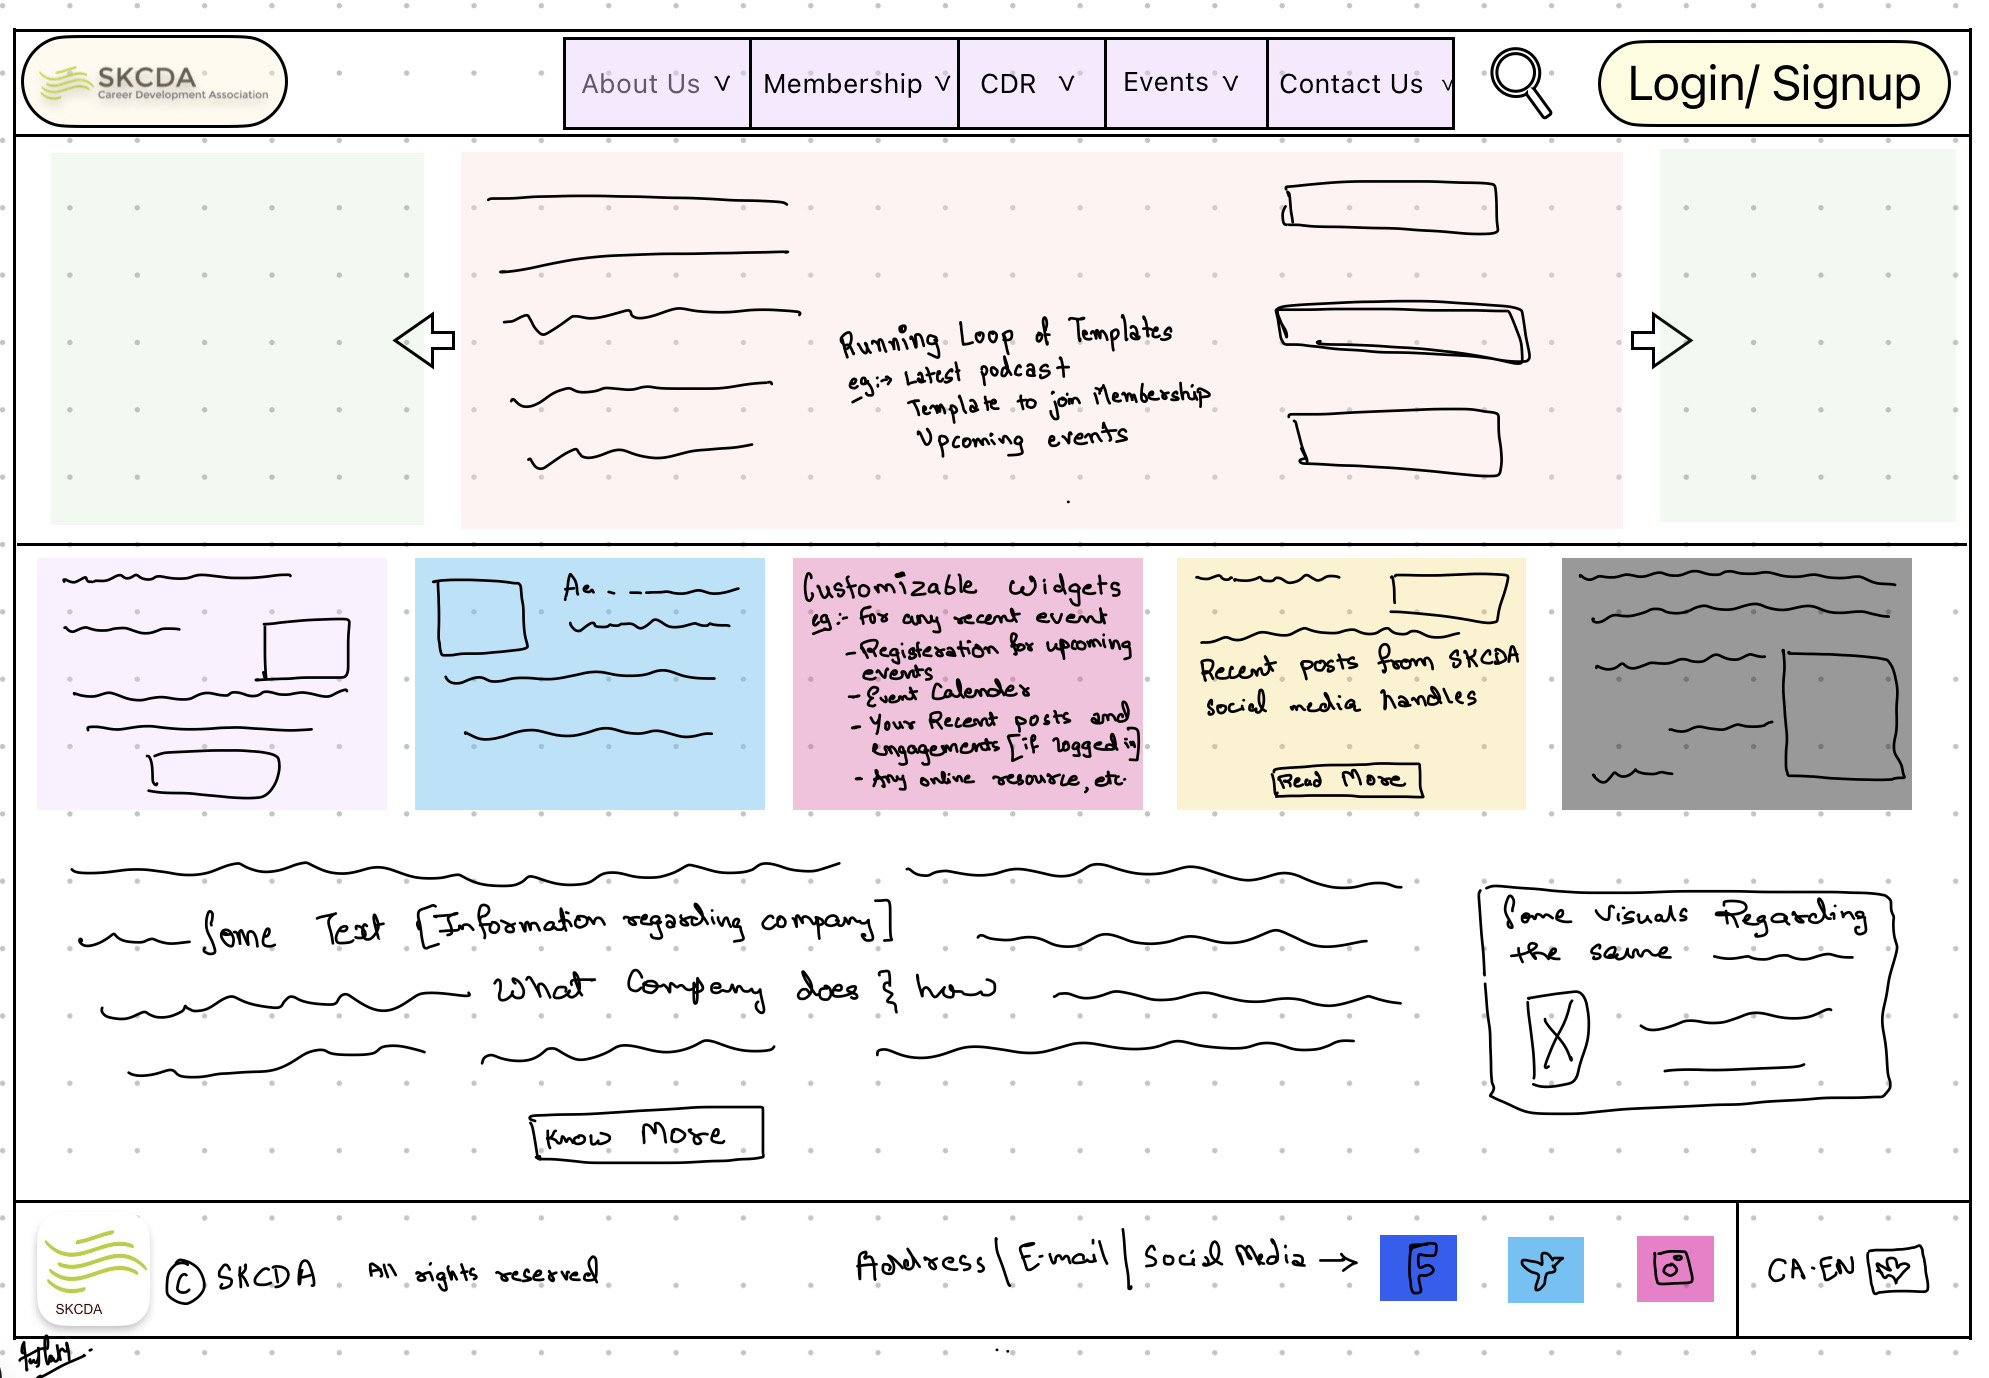 SKCDA
Career Development Association
About Us
Membership
CDR
Events
Contact Us
Login/ Signup
Running Loop of Templates
eg:→ Latest podcast
Template to join Membership
Upcoming events
Customizable Widgets
eg:- For any recent event
- Registeration for upcoming
events
- Event Calender
- Your Recent posts and
engagements [if logged in]
- Any online resource, etc.
Recent posts from SKCDA
social media handles
Read More
Some Text [Information regarding company]
What Company does & how
Know More
Some visuals Regarding
the same
SKCDA
© SKCDA All rights reserved
Address | E-mail | Social Media →
F
CA-EN